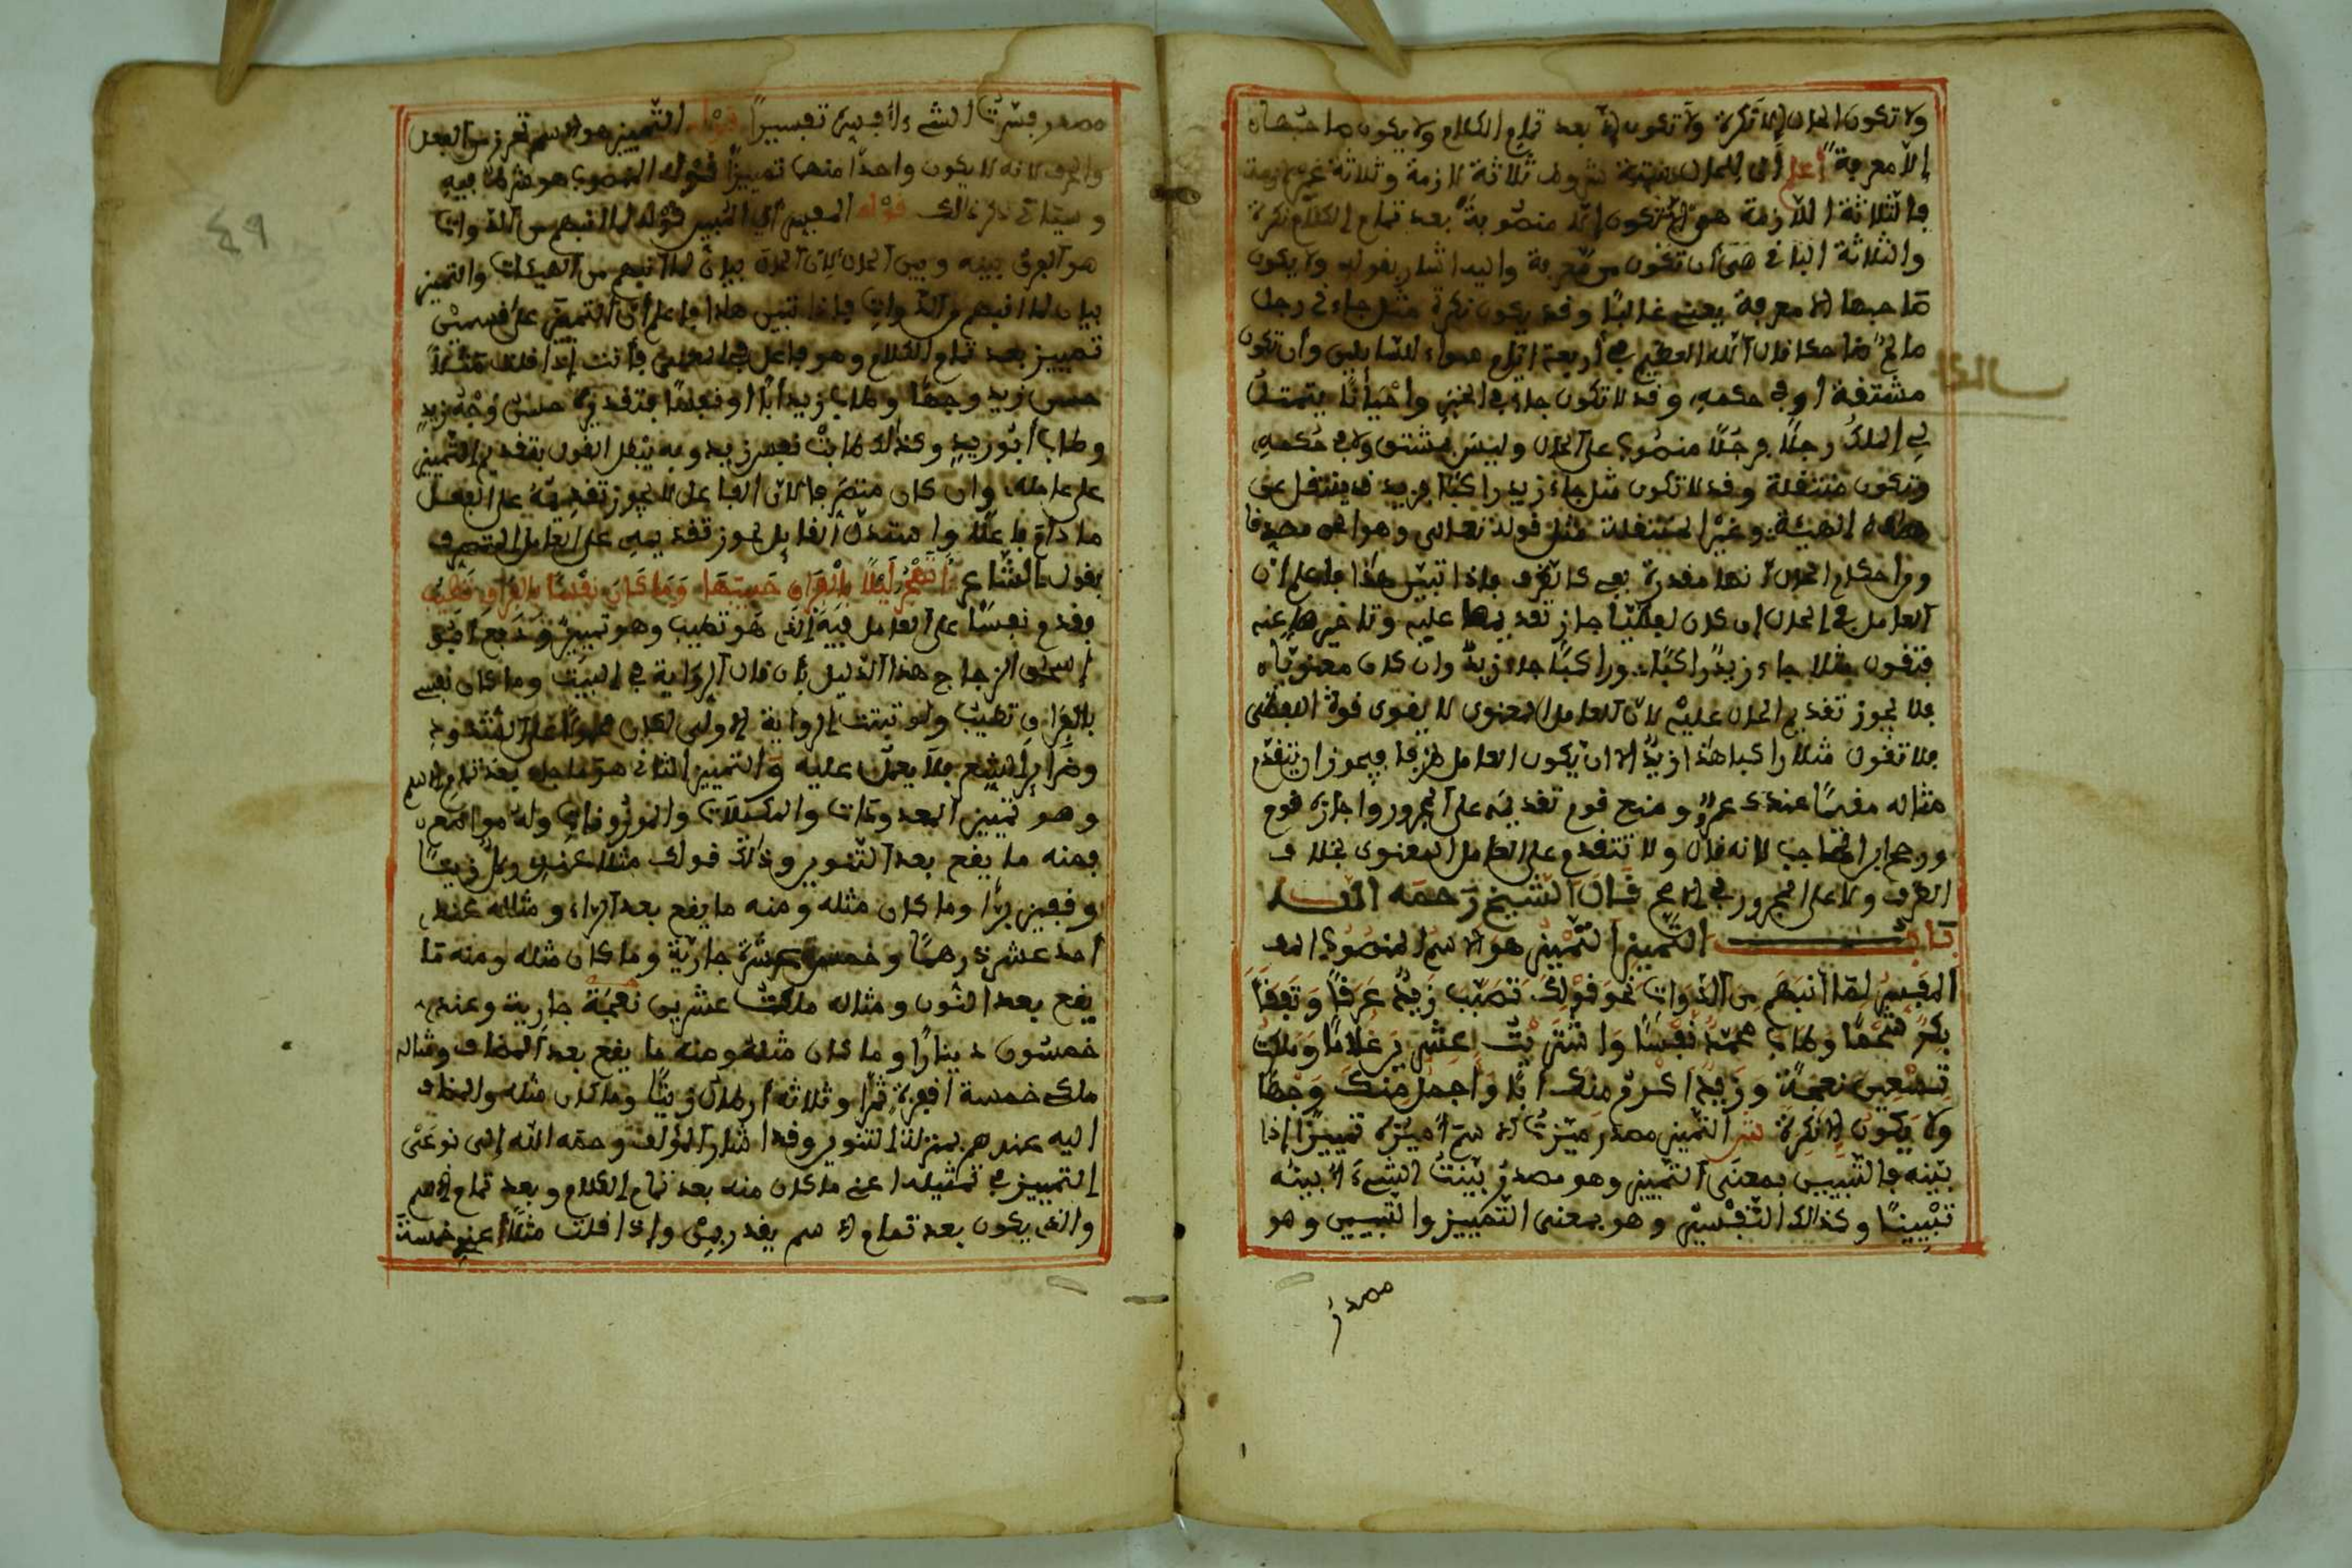 ولا تكون الحال إلا نكرة ولا تكون إلا بعد تمام الكلام ولا يكون صاحبها
إلا معرفة اعلم أن للحال ستة شروط ثلاثة لازمة وثلاثة غير لازمة
فالثلاثة اللازمة هو أن تكون منصوبة بعد تمام الكلام نكرة
والثلاثة الباقي هي أن تكون من معرفة واليه اشار بقوله ولا يكون
صاحبها الا معرفة يعني غالبا وقد يكون نكرة مثل جاءني رجل
ضاحكا قال الله العظيم في أربعة ايام سواء للسايلين وأن تكون
مشتقة او في حكمه وقد لا تكون جاء في الخبر واحيانا يتمثل
لي الملك رجلا فرجلا منصوب على الحال وليس بمشتق ولا في حكمه
وتكون منتقلة وقد لا تكون مثل جاء زيد راكبا فزيد ينتقل عن
هذه الهيئة وغير المنتقلة مثل قوله تعالى وهو الحق مصدقا
ومن احكام الحال انها مقدرة بفي كالظرف فاذا تبين هذا فاعلم أن
العامل في الحال إن كان لفظيا جاز تقديمها عليه وتاخيرها عنه
فتقول مثلا جاء زيد راكبا وراكبا جاء زيد وان كان معنويا
فلا يجوز تقديم الحال عليه لان العامل المعنوي لا يقوى قوة اللفظي
فلا تقول مثلا راكبا هذا زيد الا ان يكون العامل ظرفا فيجوز ان يتقدم
مثاله مقيما عندك عمرو ومنع قوم تقديمه على المجرور واجازه قوم
ووهم ابن الحاجب لانه قال ولا تتقدم على العامل المعنوي بخلاف
الظرف ولا على المجرور في الاصح قال الشيخ رحمه الله
باب التمييز التمييز هو الاسم المنصوب
المفسر لما انبهم من الذوات نحو قولك تصبب زيد عرقا وتفقأ
بكر شحما وطاب محمد نفسا واشتريت عشرين غلاما وملكت
تسعين نعجة وزيد اكرم منك أبا وأجمل منك وجها
ولا يكون إلا نكرة ش التمييز مصدر ميزت الاسم أميزه تمييزا إذا
بينه فالتبيين بمعنى التمييز وهو مصدر بينت الشيء أبينه
تبيينا وكذلك التفسير وهو بمعنى التمييز والتبيين وهو
مصدر
مصدر فسرت الشيء أفسره تفسيرا قوله التمييز هو الاسم تحرز من الفعل
والحرف لانه لا يكون واحدا منهما تمييزا قوله المنصوب هو شرط فيه
وسيأتي ذكر ذلك قوله المفسر أي المبين قوله لما انبهم من الذوات
هو الفرق بينه وبين الحال لان الحال بيان لما انبهم من الهيئات والتمييز
بيان لما انبهم من الذوات فاذا تبين هذا فاعلم أن التمييز على قسمين
تمييز بعد تمام الكلام وهو فاعل في المعنى فأنت إذا قلت مثلا
حسن زيد وجها وطاب زيد أبا ونفسا فتقديره حسن وجه زيد
وطاب أبو زيد وكذلك طابت نفس زيد وبه يبطل القول بتقديم التمييز
على عامله وان كان متصرفا لان الفاعل لا يجوز تقديمه على الفعل
ما دام فاعلا واستدل القايل بجواز تقديمه على العامل المتصرف
بقول الشاعر أتهجر ليلى بالفراق حبيبها وما كان نفسا بالفراق تطيب
فقدم نفسا على العامل فيه الذي هو تطيب وهو تمييز ودفع أبو
إسحاق الزجاج هذا الدليل بأن قال الرواية في البيت وما كان نفسي
بالفراق تطيب ولو ثبتت الرواية الأولى لكان محمولا على الشذوذ
وضراير الشعر فلا يعمل عليه والتمييز الثاني هو ما جاء بعد تمام الاسم
وهو تمييز المعدودات والمكيلات والموزونات وله مواضع
فمنه ما يقع بعد التنوين وذلك قولك مثلا عندي رطل زيتا
وقفيز برا وما كان مثله ومنه ما يقع بعد الراء ومثاله عندي
أحد عشر درهما وخمس عشرة جارية وما كان مثله ومنه ما
يقع بعد النون ومثاله ملكت عشرين نعجة جارية وعندي
خمسون دينارا وما كان مثله ومنه ما يقع بعد المضاف ومثاله
ملك خمسة أقفزة تمرا وثلاثة ارطال زيتا وما كان مثله والمضاف
اليه عندهم بمنزلة التنوين وقد اشار المؤلف رحمه الله إلى نوعي
التمييز في تمثيله اعني ما كان منه بعد تمام الكلام وبعد تمام الاسم
والذي يكون بعد تمام الاسم يقدر بمن وإذا قلت مثلا عندي خمسة
٤٩